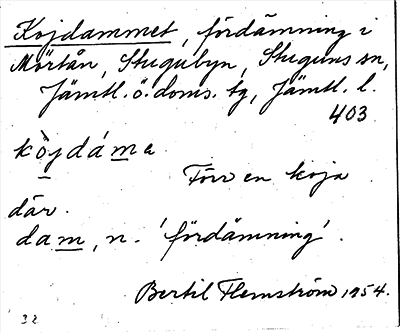 Kojdammet, fördämning i
Mörtån, Stugubyn, Stuguns sn,
Jämtl. ö. doms. tg, Jämtl. l.
403
kòjdáma
Förr en koja
där.
dam, n. 'fördämning'.
Bertil Flemström 1954.
32